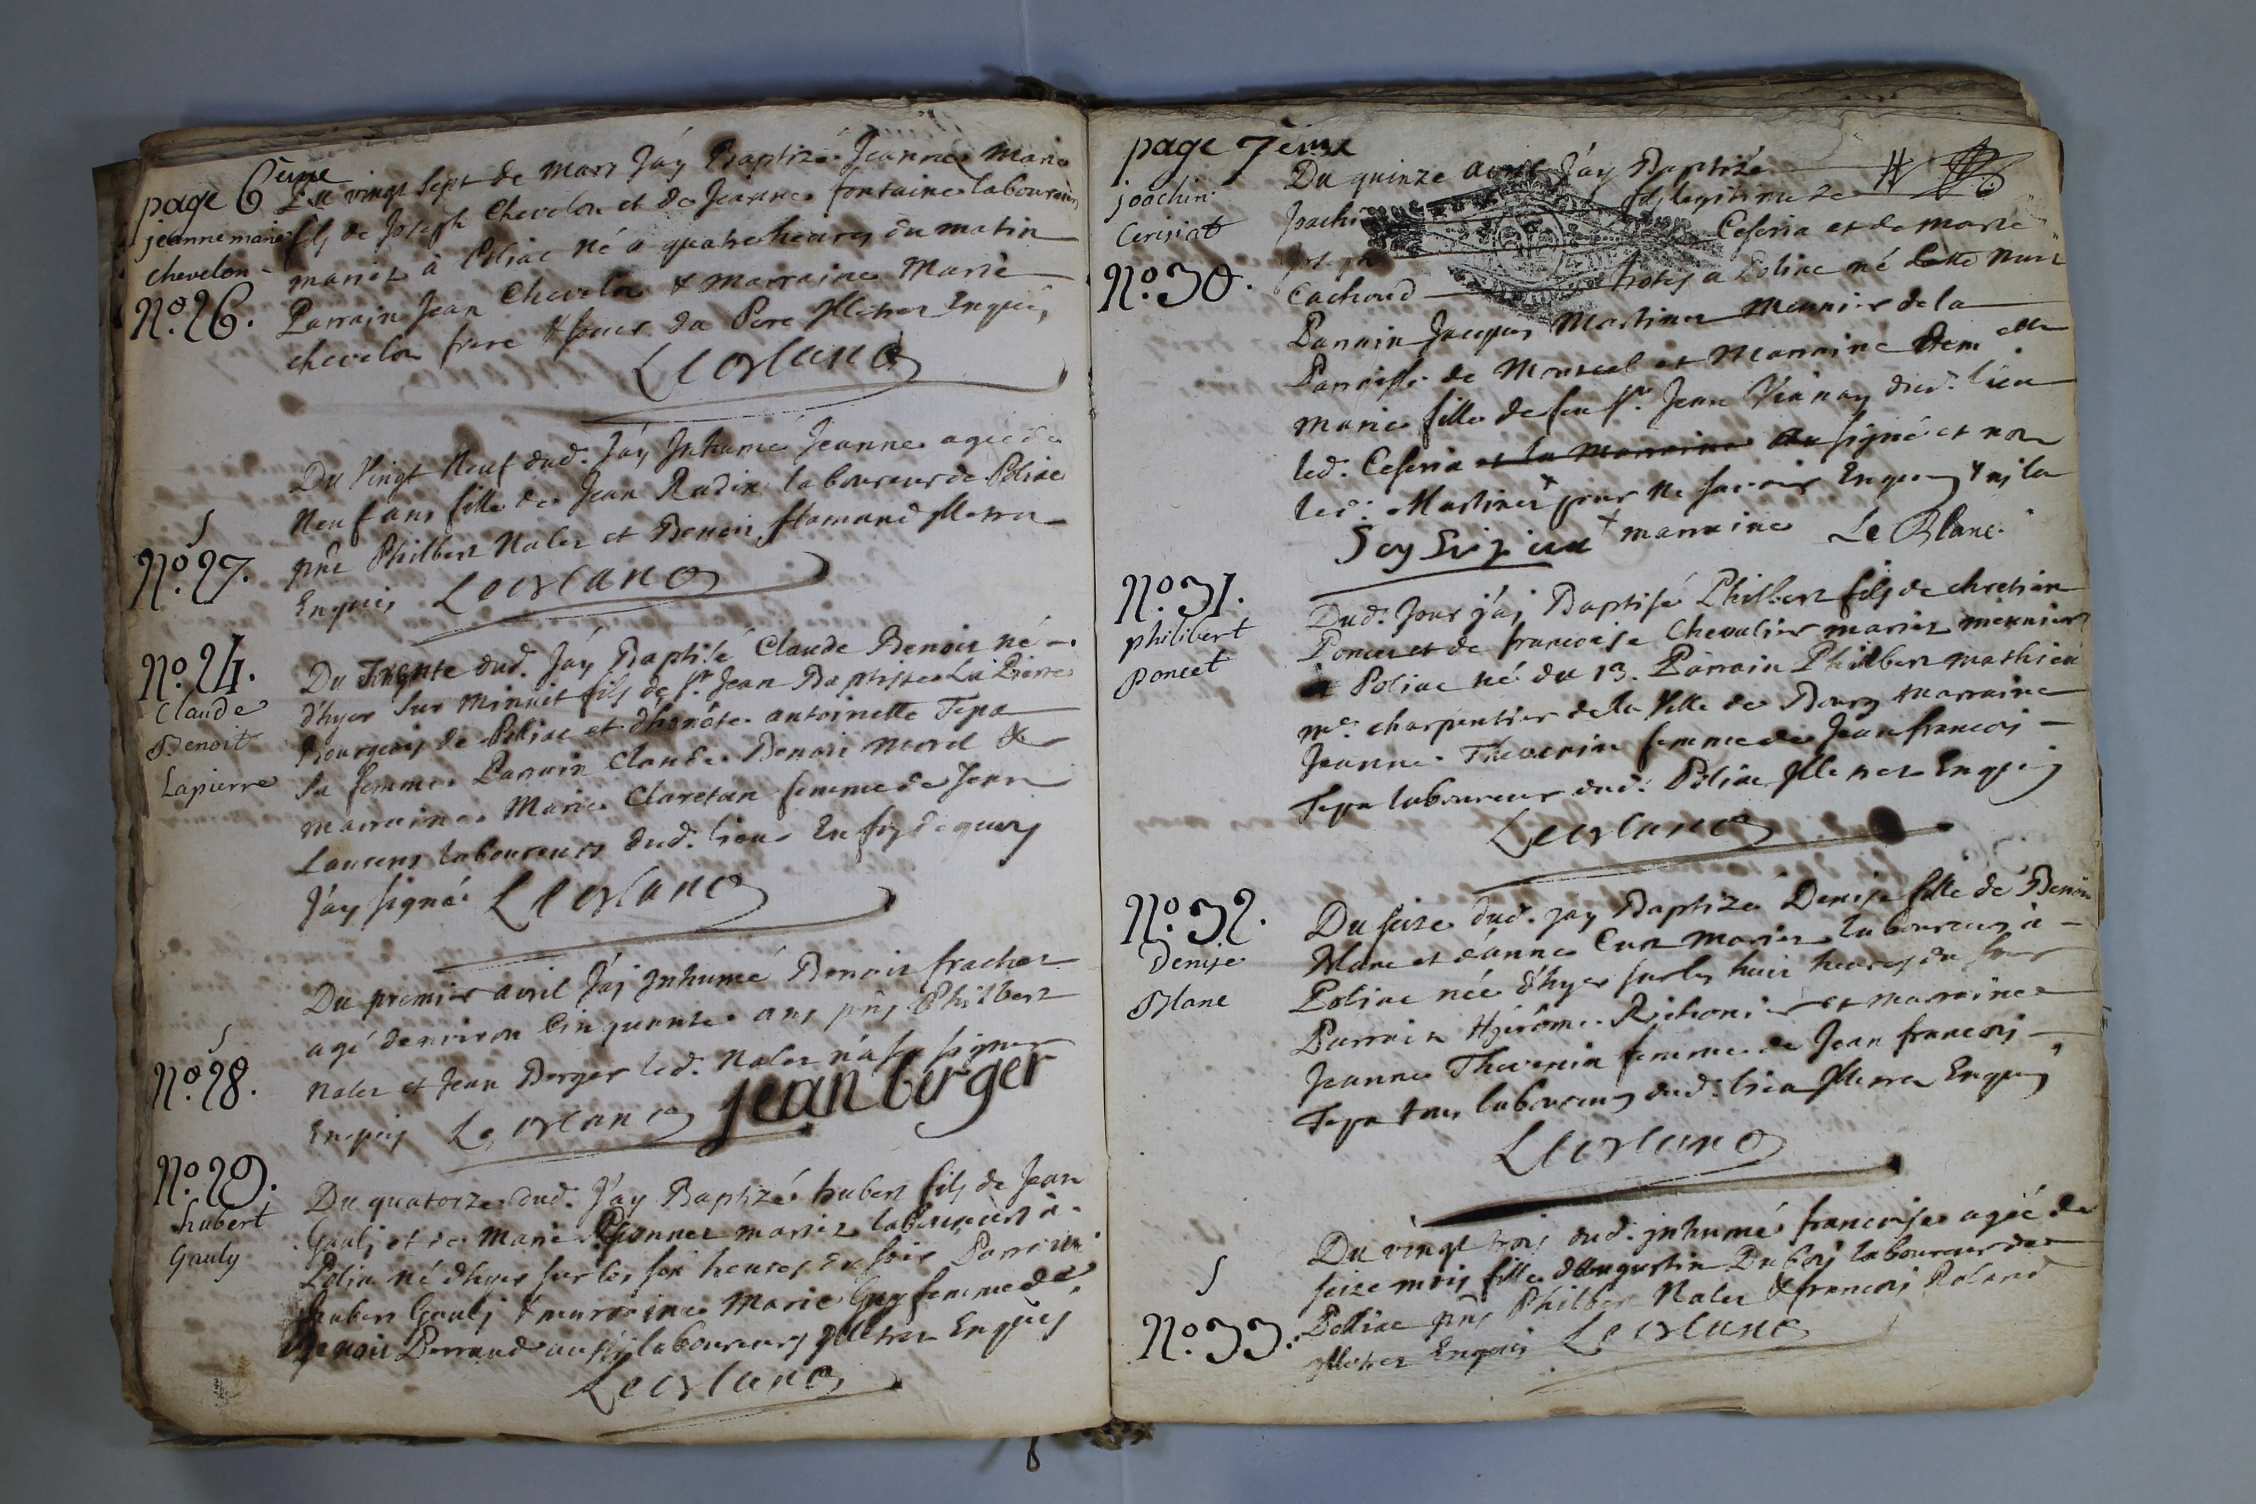 page 6ème
jeanne marie
chevelon
No. 26.
Du vingt sept de mars J'ay Baptizé Jeanne Marie
fils de Joseph Chevelon et de Jeanne fontaine laboureurs
mariez à Poliac Né a quatre heures du matin
Parrain Jean Chevelon & Marraine Marie
chevelon frere & soeur du Pere Illetrez Enquis
Leblanc
S
No. 27.
Du Vingt Neuf dud. J'ay Inhumé Jeanne agée de
Neuf ans fille de Jean Rudin laboureur de Poliac
pñt Philbert Nalet et Benoit flamand Illetrez
Enquis Leblanc
No. 24.
Claude
Benoit
Lapierre
Du Trente dud. J'ay Baptisé Claude Benoit né
d'hyer sur Minuit fils de Sr. Jean Baptiste La Pierre
Bourgeois de Poliac et d'honête antoinette Tepa
Sa femme Parrain Claude Benoit Morel &
marraine Marie Claretan femme de Jean
Laurent laboureurs dud. lieu En foy de quoy
J'ay signé Leblanc
S
No. 28.
Du premier avril J'ai Inhumé Benoit frachet
agé d'environ Cinquante ans pñs Philbert
Nalet et Jean Berger led. Nalet n'a sçu signer
Enquis Leblanc jean berger
No. 29.
hubert
Gauly
Du quatorze dud. J'ay Baptizé hubert fils de Jean
Gauly et de Marie Peonnet mariez laboureurs à
Poliac né d'hyer sur les six heures du soir Parrain
hubert Gauly & marraine Marie Guy femme de
Benoit Perraud aussy laboureurs Illetrez Enquis
Leblanc
page 7ème
joachin
Cerisiat
No. 30.
Du quinze avril J'ay Baptizé
Joachi fils legitime de
Joseph Ceseria et de Marie
Cachoud hotes a Poliac né cette nuit
Parrain Jacques Martinet Meunier de la
Parroisse de Montcel et Marraine Dem elle
Marie fille de feu Sr. Jean Viannay dud. lieu
led. Ceseria et la Marraine ont signé et non
led. Martinet pour ne savoir Enquis & ni la
marraine Le Blanc
No. 31.
philibert
poncet
Dud. Jour j'ai Baptisé Philbert fils de chretien
Poncet et de francoise Chevalier mariez meuniers
Poliac né du 13. Parrain Philbert mathieu
me. charpentier de la Ville de Bourg Marraine
Jeanne Thevenin femme de Jean francois
Tepa laboureur dud. Poliac Illetrez Enquis
Leblanc
No. 32.
Denise
Blanc
Du seize dud. j'ay Baptizé Denise fille de Benoit
Blanc et d'anne Curt Mariez laboureurs à
Poliac née d'hyer sur les huit heures du soir
Parrain Hyerôme Richonier et marraine
Jeanne Thevenin femme de Jean francois
Tepa tous laboureurs dud. lieu Illetrez Enquis
Leblanc
S
No. 33.
Du vingt trois dud. inhumé francoise agée de
seize mois fille d'Augustin Dubois laboureur de
Polliac pñs Philbert Nalet & francois Roland
Illetrez Enquis Leblanc